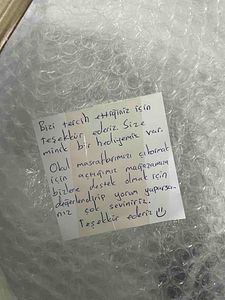 Bizi tercih ettiğiniz için
teşekkür ederiz. Size
minik bir hediyemiz var.
Okul masraflarımızı çıkarmak
için açtığımız mağazamıza
bizlere destek olmak için
değerlendirip yorum yaparsa-
nız çok seviniriz.
Teşekkür ederiz